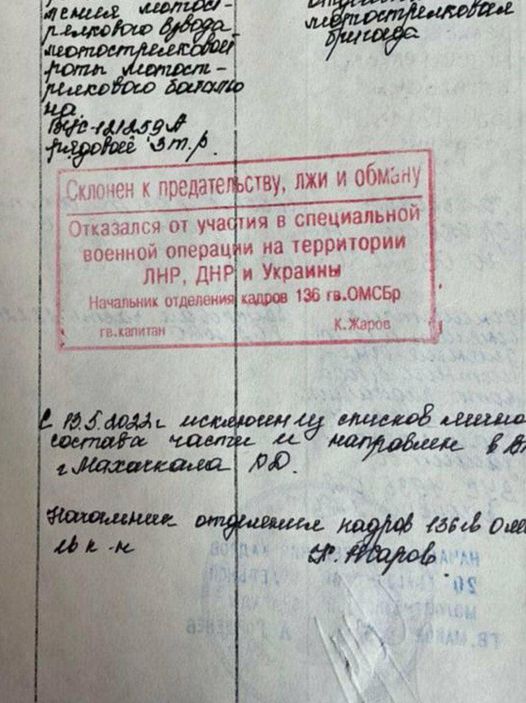 релкового взвода
мотострелковой
роты мотост-
релкового батальо
на.
ВУС-121259А
рядовой 3 т.р.
мотострелковая
бригада
Склонен к предательству, лжи и обману
Отказался от участия в специальной
военной операции на территории
ЛНР, ДНР и Украины
Начальник отделения кадров 136 гв.ОМСБр
гв.капитан К.Жаров
С 13.5.2022г исключен из списков лично
состава части и направлен в В
г Махачкала РД.
Начальник отделения кадров 136 гв Омс
гв к-н К. Жаров